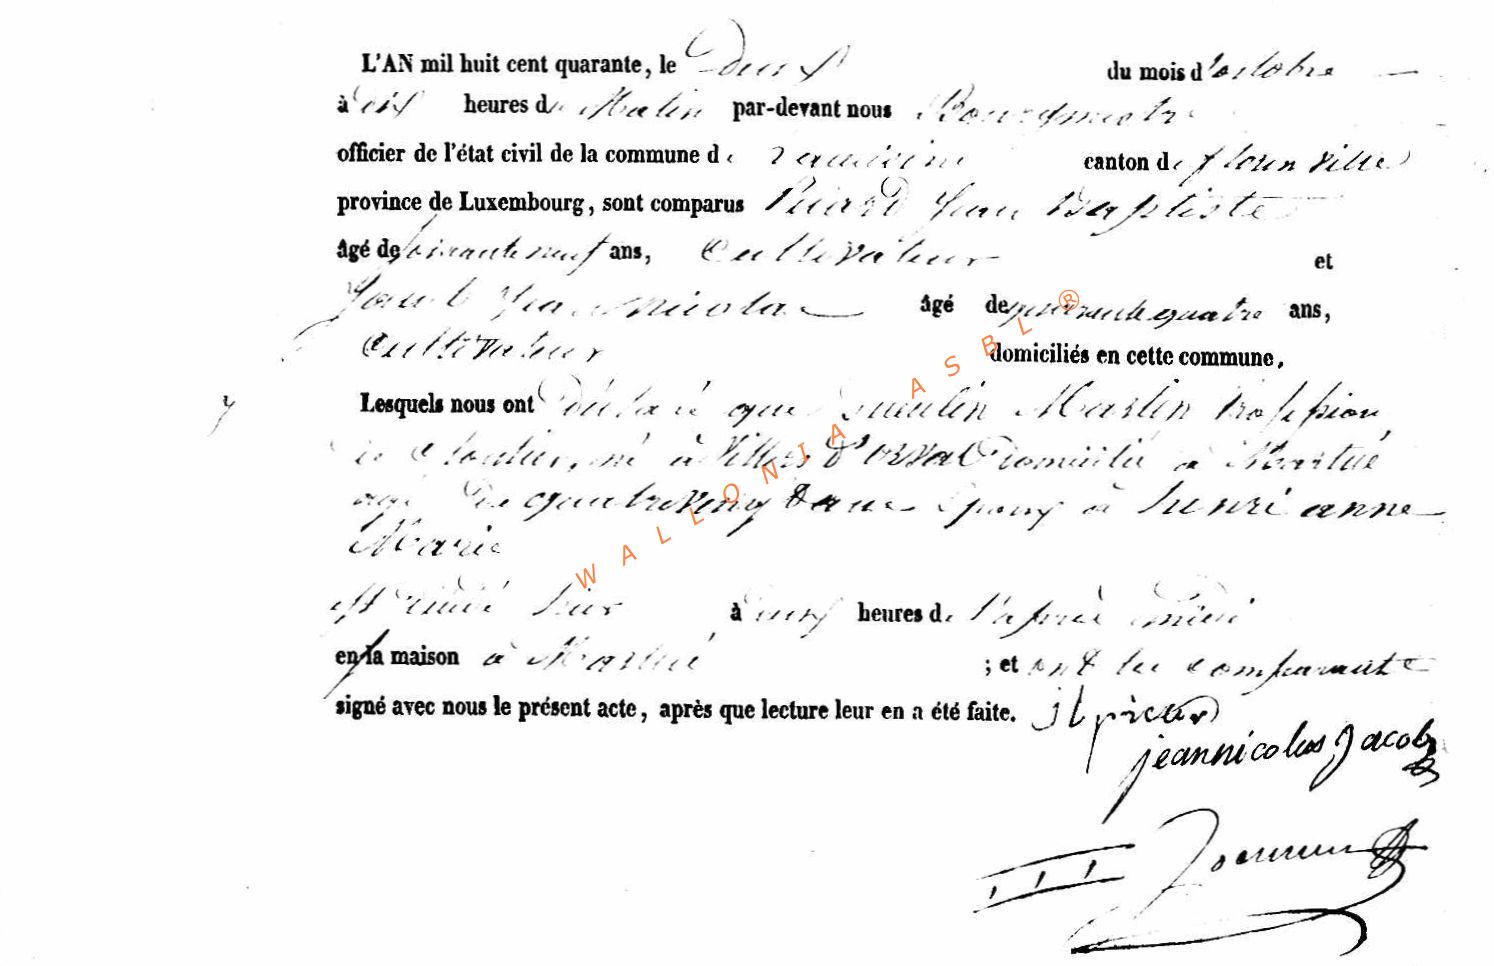 L'AN mil huit cent quarante, le Deux du mois d'octobre
à dix heures du Matin par-devant nous Bourgmestre
officier de l'état civil de la commune de canton de florenville
province de Luxembourg, sont comparus Picard Jean Baptiste
âgé de soixante neuf ans, Cultivateur et
Jacob Jean nicolas âgé de quarante quatre ans,
Cultivateur domiciliés en cette commune,
Lesquels nous ont déclaré que Martin profession
de né à Villers d'orval Domicilié à Martué
agé De quatre vingt Epoux à henri anne
Marie
est hier à heures de l'après midi
en sa maison à Martué ; et ont les comparants
signé avec nous le présent acte, après que lecture leur en a été faite. j b picard
jeannicolas Jacob
WALLONIA ASBL ®